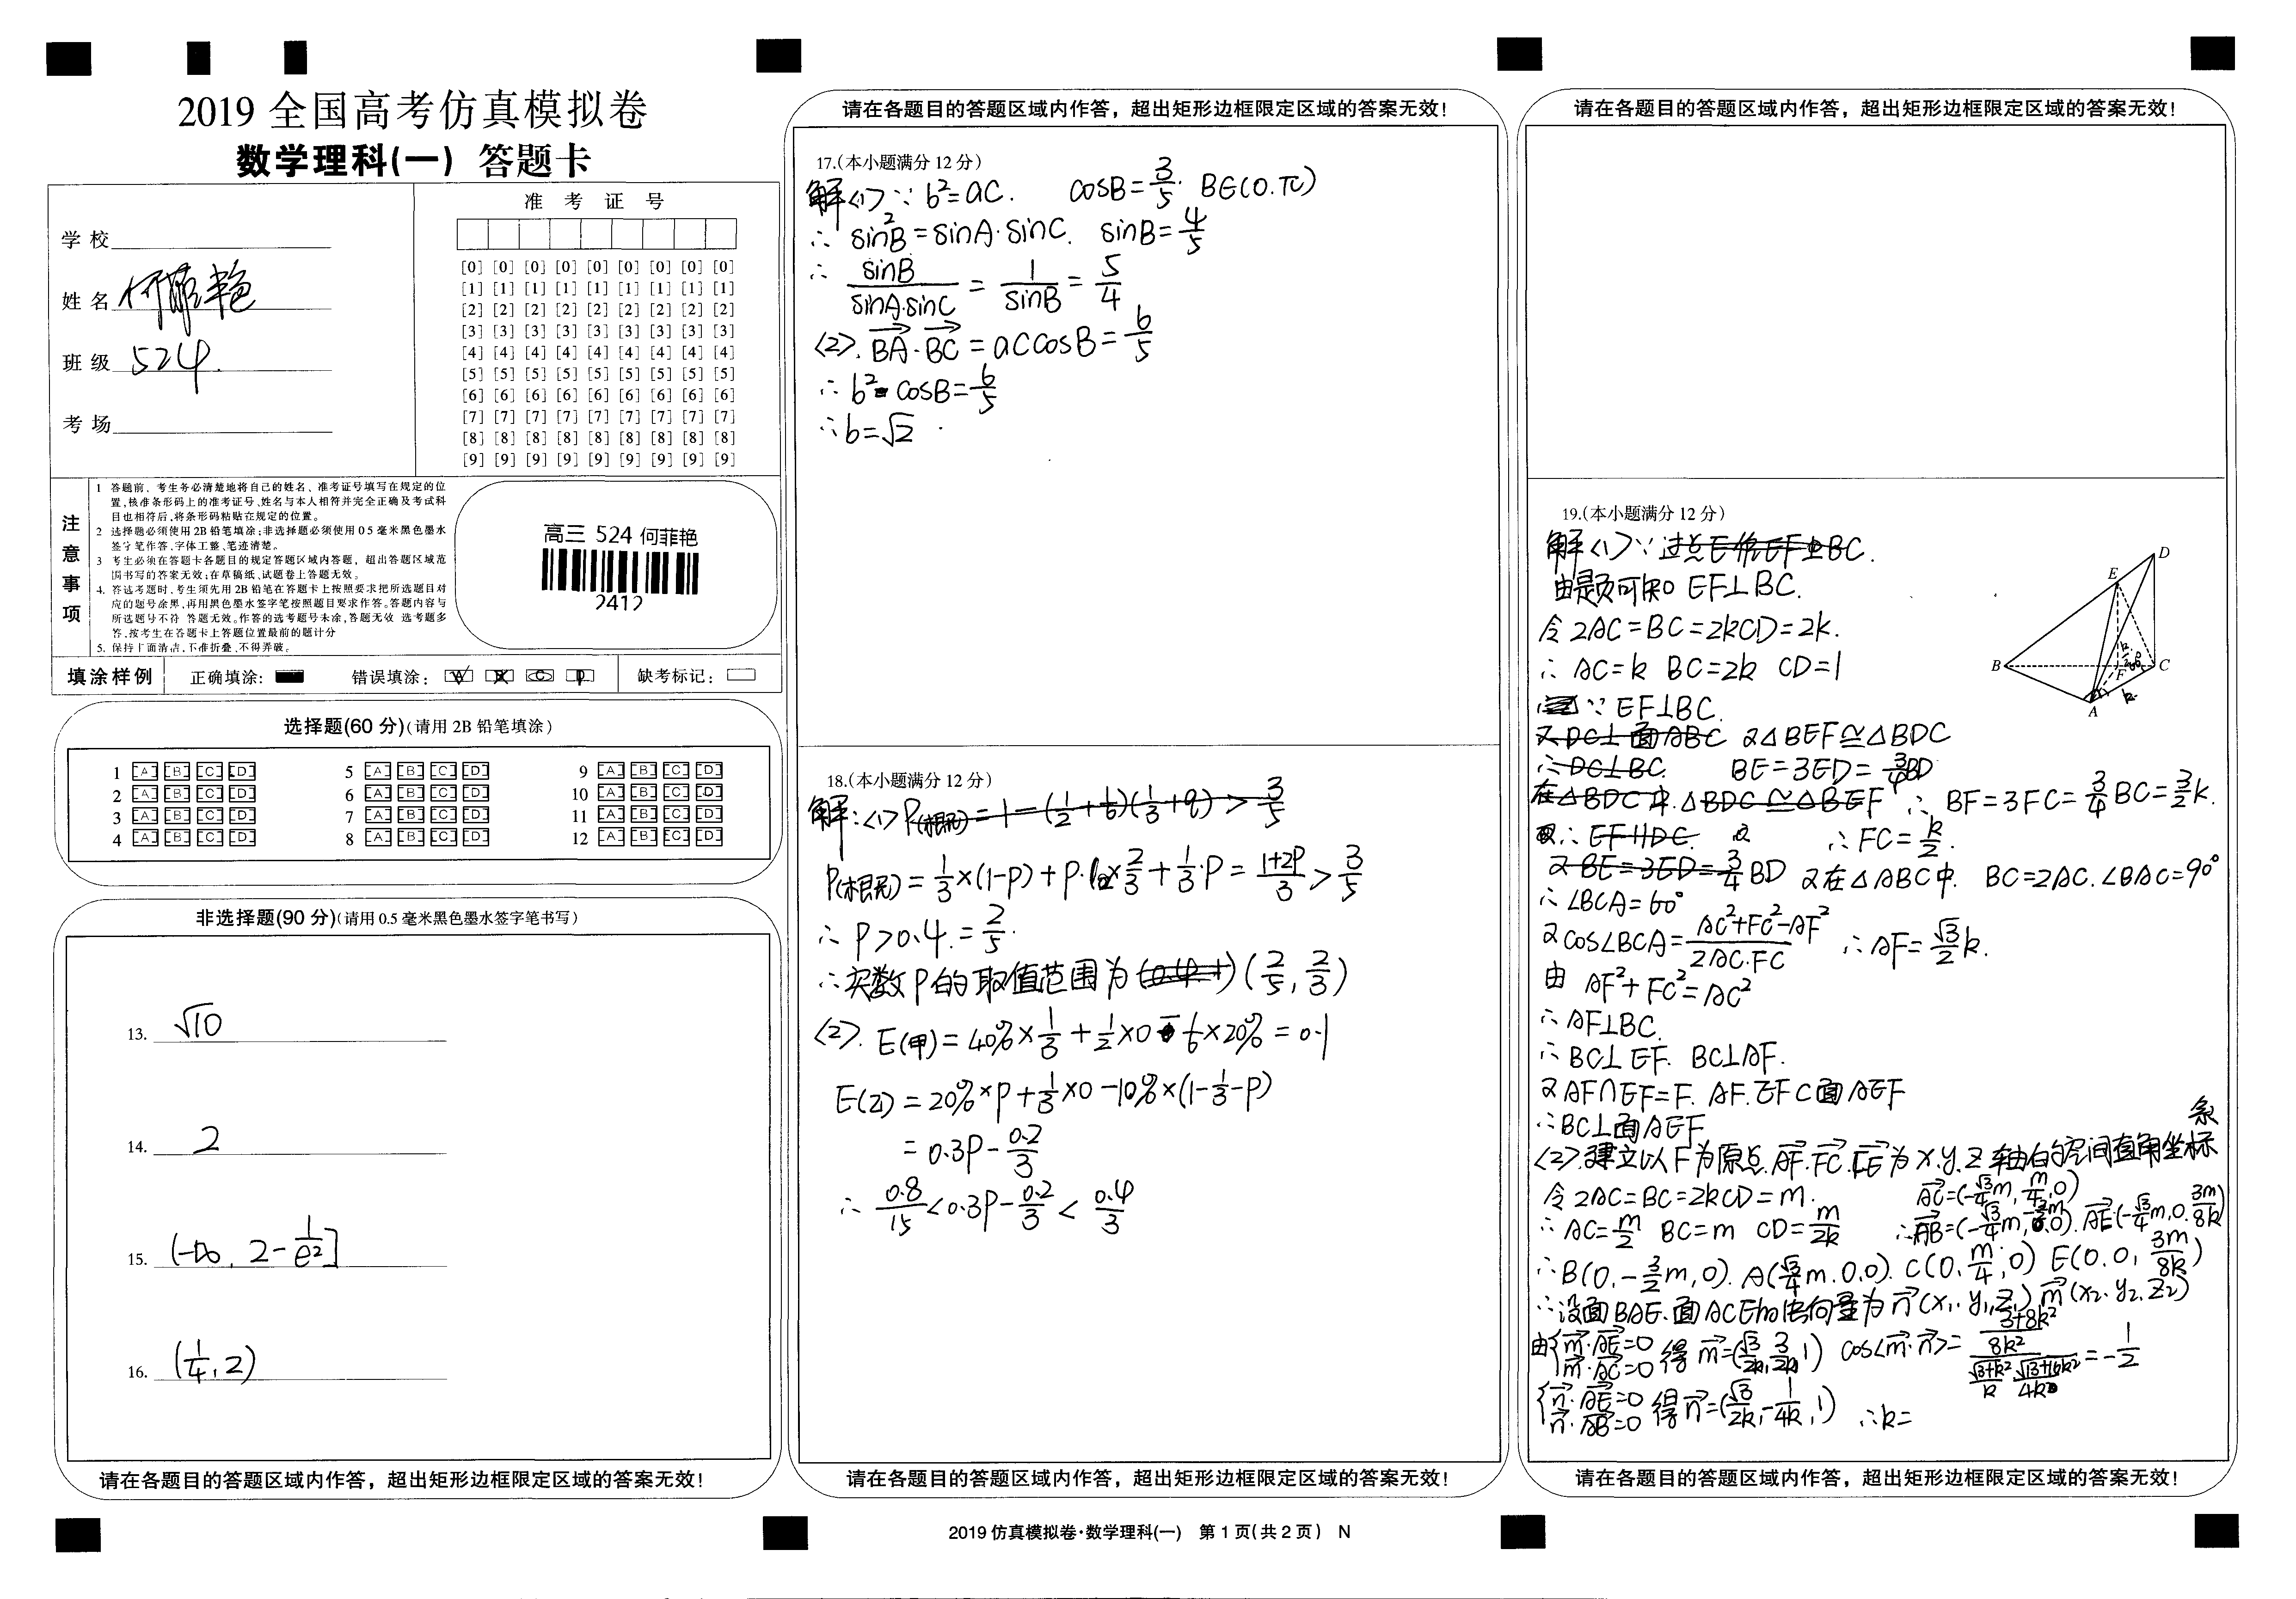 2019 全国高考仿真模拟卷
数学理科(一) 答题卡
学校
姓名 何菲艳
班级 524.
考场
准 考 证 号
[0] [0] [0] [0] [0] [0] [0] [0] [0]
[1] [1] [1] [1] [1] [1] [1] [1] [1]
[2] [2] [2] [2] [2] [2] [2] [2] [2]
[3] [3] [3] [3] [3] [3] [3] [3] [3]
[4] [4] [4] [4] [4] [4] [4] [4] [4]
[5] [5] [5] [5] [5] [5] [5] [5] [5]
[6] [6] [6] [6] [6] [6] [6] [6] [6]
[7] [7] [7] [7] [7] [7] [7] [7] [7]
[8] [8] [8] [8] [8] [8] [8] [8] [8]
[9] [9] [9] [9] [9] [9] [9] [9] [9]
注意事项
1 答题前，考生务必清楚地将自己的姓名、准考证号填写在规定的位
置,核准条形码上的准考证号、姓名与本人相符并完全正确及考试科
目也相符后,将条形码粘贴在规定的位置。
2 选择题必须使用2B铅笔填涂;非选择题必须使用0 5毫米黑色墨水
签字笔作答,字体工整、笔迹清楚。
3 考生必须在答题卡各题目的规定答题区域内答题，超出答题区域范
围书写的答案无效;在草稿纸、试题卷上答题无效。
4. 答选考题时,考生须先用2B铅笔在答题卡上按照要求把所选题目对
应的题号涂黑,再用黑色墨水签字笔按照题目要求作答。答题内容与
所选题号不符 答题无效。作答的选考题号未涂,答题无效 选考题多
答,按考生在答题卡上答题位置最前的题计分
5. 保持卡面清洁,不准折叠、不得弄破。
高三 524 何菲艳
2412
填涂样例 正确填涂: 错误填涂: 缺考标记:
选择题(60 分)(请用 2B 铅笔填涂)
1 [A] [B] [C] [D] 5 [A] [B] [C] [D] 9 [A] [B] [C] [D]
2 [A] [B] [C] [D] 6 [A] [B] [C] [D] 10 [A] [B] [C] [D]
3 [A] [B] [C] [D] 7 [A] [B] [C] [D] 11 [A] [B] [C] [D]
4 [A] [B] [C] [D] 8 [A] [B] [C] [D] 12 [A] [B] [C] [D]
非选择题(90 分)(请用 0.5 毫米黑色墨水签字笔书写)
13. √10
14. 2
15. (-∞, 2-1/e²]
16. (1/4, 2)
请在各题目的答题区域内作答，超出矩形边框限定区域的答案无效!
请在各题目的答题区域内作答，超出矩形边框限定区域的答案无效!
17.(本小题满分 12 分)
解<1>∵ b²=ac. cosB=3/5. B∈(0.π)
∴ sin²B=sinA·sinC. sinB=4/5
∴ sinB/(sinA·sinC) = 1/sinB = 5/4
<2>. BA·BC = accosB=6/5
∴ b² cosB=6/5
∴b=√2 .
18.(本小题满分 12 分)
解:<1>P(相宪)=1-(1/2+1/6)(1/3+q)>3/5
P = 1/3×(1-P)+P·×2/3+1/3·P = (1+2P)/3 > 3/5
∴ P>0.4. = 2/5.
∴实数P的取值范围为 (2/5, 2/3)
<2>. E(甲)=40%×1/3+1/2×0-1/6×20%=0.1
E(乙)=20%×P+1/3×0-10%×(1-1/3-P)
=0.3P-0.2/3
∴ 0.8/15<0.3P-0.2/3<0.4/3
请在各题目的答题区域内作答，超出矩形边框限定区域的答案无效!
2019 仿真模拟卷·数学理科(一) 第 1 页(共 2 页) N
请在各题目的答题区域内作答，超出矩形边框限定区域的答案无效!
19.(本小题满分 12 分)
解<1>∵过点E作EF⊥BC.
由题可知 EF⊥BC.
令 2AC=BC=2kCD=2k.
∴ AC=k BC=2k CD=1
∵ EF⊥BC.
又DC⊥面ABC 又△BEF≅△BDC
∴DC⊥BC. BE=3ED=3/4BD
在△BDC中.△BDC≅△BEF ∴ BF=3FC=3/4BC=3/2k.
∴EF∥DC. 又 ∴FC=k/2.
又BE=3ED=3/4BD 又在△ABC中. BC=2AC.∠BAC=90°
∴∠BCA=60°
又cos∠BCA=(AC²+FC²-AF²)/(2AC·FC) ∴AF=√3/2 k.
由 AF²+FC²=AC²
∴AF⊥BC.
∴BC⊥EF. BC⊥AF.
又AF∩EF=F. AF.EF⊂面AEF
∴BC⊥面AEF
<2>.建立以F为原点.AF.FC.FE为X.Y.Z轴的空间直角坐标系
令2AC=BC=2kCD=m. AC=(-√3/4m, m/4, 0)
∴AC=m/2 BC=m CD=m/2k ∴AB=(-√3/4m,-3/4m,0). AE(-√3/4m,0.3m/8k)
∴B(0,-3/2m,0). A(√3/4m.0,0). C(0,m/4,0) E(0.0,3m/8k)
∴设面BAE.面ACE的法向量为n(x₁.y₁,z₁) m(x₂.y₂,z₂)
由{m·AE=0 m·AC=0 得m=(√3/2k,3/2k,1) cos<m·n>=((3+8k²)/8k²)/(√(3+k²)/k·√(13+16k²)/4k)=-1/2
{n·AE=0 n·AB=0 得n=(√3/2k,-1/4k,1) ∴k=
D
E
B
F
C
A
k
请在各题目的答题区域内作答，超出矩形边框限定区域的答案无效!